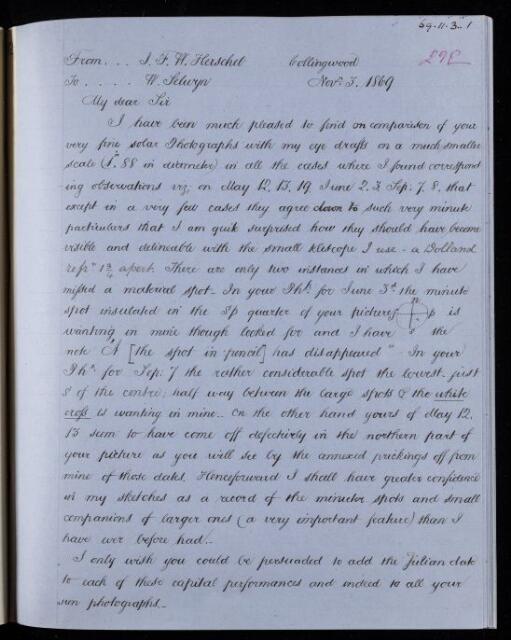 69.11.3.1
From... J. F. W. Herschel Collingwood
To..... W. Selwyn Nov. 3. 1869
My dear Sir
I have been much pleased to find on comparison of your
very fine solar Photographs with my eye drafts on a much smaller
scale (1. 88 in diameter) in all the cases where I found correspond
ing observations viz; on May 12. 13. 19. June 2. 3. Sep: 7. 8. that
except in a very few cases they agree down to such very minute
particulars that I am quite surprised how they should have become
visible and delineable with the small telescope I use - a Dolland
refr 1 3/4 apert. There are only two instances in which I have
missed a material spot - In your Ph for June 3d the minute
spot insulated in the Sp quarter of your picture p is
wanting in mine though looked for and I have the
note "A [the spot in pencil] has disappeared" In your
Ph. for Sep: 7 the rather considerable spot the lowest first
S of the centre; half way between the large spots & the white
cross is wanting in mine - On the other hand yours of May 12.
13 seem to have come off defectively in the northern part of
your picture as you will see by the annexed prickings off from
mine of those dates. Henceforward I shall have greater confidence
in my sketches as a record of the minuter spots and small
companions of larger ones (a very important feature) than I
have ever before had!-
I only wish you could be persuaded to add the Julian date
to each of these capital performances and indeed to all your
sun photographs.-